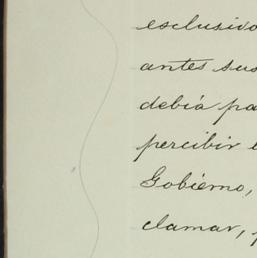 exclusivo
antes sus
debiá pa
percibir
Gobierno,
clamar,